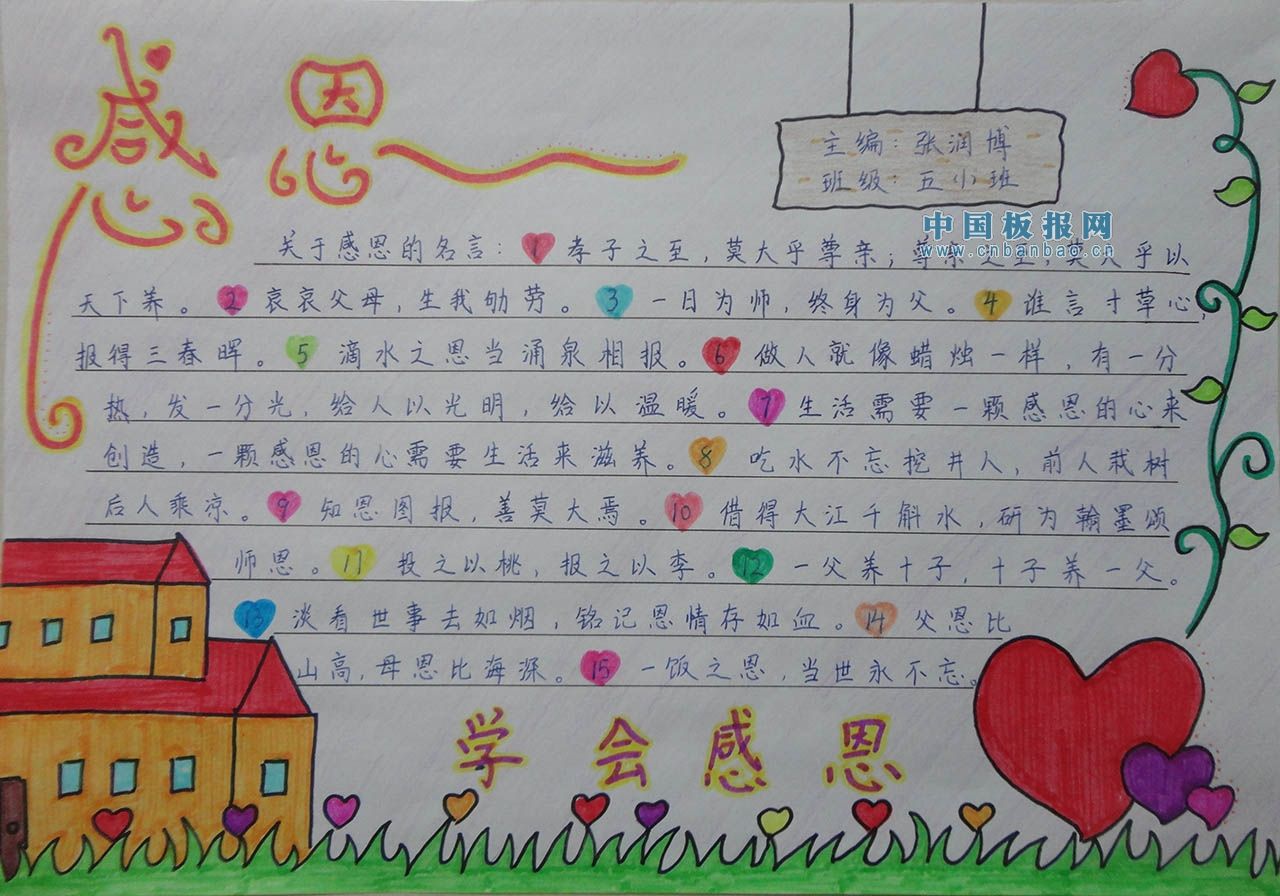 感恩
主编：张润博
班级：五小班
中国板报网
www.cnbanbao.cn
关于感恩的名言：1 孝子之至，莫大乎尊亲；尊亲之至，莫大乎以
天下养。2 哀哀父母，生我劬劳。3 一日为师，终身为父。4 谁言寸草心，
报得三春晖。5 滴水之恩当涌泉相报。6 做人就像蜡烛一样，有一分
热，发一分光，给人以光明，给以温暖。7 生活需要一颗感恩的心来
创造，一颗感恩的心需要生活来滋养。8 吃水不忘挖井人，前人栽树
后人乘凉。9 知恩图报，善莫大焉。10 借得大江千斛水，研为翰墨颂
师恩。11 投之以桃，报之以李。12 一父养十子，十子养一父。
13 淡看世事去如烟，铭记恩情存如血。14 父恩比
山高，母恩比海深。15 一饭之恩，当世永不忘。
学会感恩